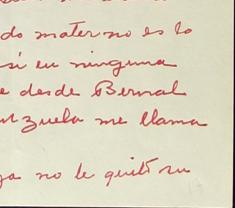 do materno es lo
si en ninguna
e desde Bernal
nzuela me llama
ya no le quitó su